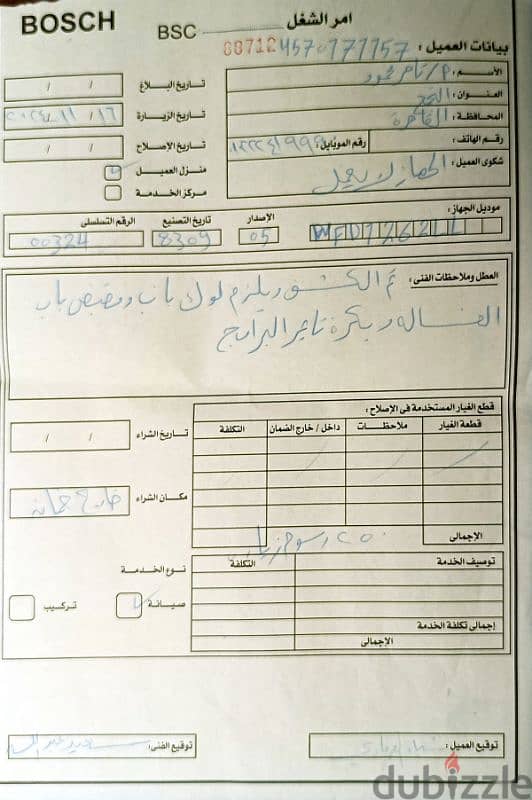 BOSCH
امر الشغل
BSC
بيانات العميل :
00712 4570177157
الأسم : م/تامر محمود
العنوان : التجمع
المحافظة : القاهرة
رقم الهاتف :
رقم الموبايل :
شكوى العميل : الجهاز لا يعمل
تاريخ البلاغ / /
تاريخ الزيارة ١٦ / ١١ / ٢٠٢٤
تاريخ الإصلاح / /
منزل العميل
مركز الخدمة
موديل الجهاز : WFD17621L
الإصدار 05
تاريخ التصنيع 8309
الرقم التسلسلى 00324
العطل وملاحظات الفنى : تم الكشف ويلزم لوك باب ومقبض باب
الغساله وبكرة تايمر البرامج
قطع الغيار المستخدمة فى الإصلاح :
قطعة الغيار ملاحظات داخل / خارج الضمان التكلفة
الإجمالى ٢٥٠ رسوم زياره
تاريخ الشراء / /
مكان الشراء خارج ضمانه
توصيف الخدمة التكلفة
إجمالى تكلفة الخدمة
الإجمالى
نوع الخدمة
صيانة تركيب
توقيع العميل :
توقيع الفنى :
dubizzle